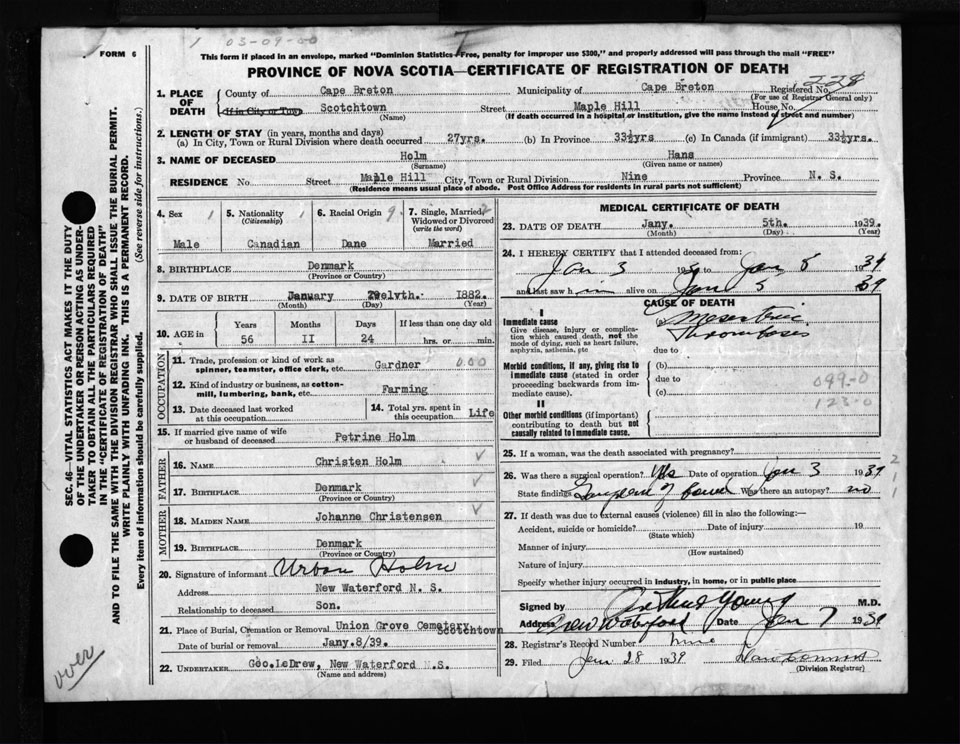 1 03-09-00
FORM 6
This form if placed in an envelope, marked "Dominion Statistics—Free, penalty for improper use $300," and properly addressed will pass through the mail "FREE"
PROVINCE OF NOVA SCOTIA—CERTIFICATE OF REGISTRATION OF DEATH
1. PLACE OF DEATH
County of Cape Breton Municipality of Cape Breton Registered No. 228
(For use of Registrar General only)
If in City or Town Scotchtown Street Maple Hill House No.
(Name) (If death occurred in a hospital or institution, give the name instead of street and number)
2. LENGTH OF STAY (in years, months and days)
(a) In City, Town or Rural Division where death occurred 27yrs. (b) In Province 33½yrs (c) In Canada (if immigrant) 33½yrs.
3. NAME OF DECEASED Holm Hans
(Surname) (Given name or names)
RESIDENCE No Street Maple Hill City, Town or Rural Division Nine Province N. S.
(Residence means usual place of abode. Post Office Address for residents in rural parts not sufficient)
4. Sex 1 5. Nationality 1 6. Racial Origin 9 7. Single, Married, 2
(Citizenship) Widowed or Divorced
(write the word)
Male Canadian Dane Married
8. BIRTHPLACE Denmark
(Province or Country)
9. DATE OF BIRTH January Twelvth. 1882.
(Month) (Day) (Year)
10. AGE in Years Months Days If less than one day old
56 II 24 hrs. or min.
OCCUPATION
11. Trade, profession or kind of work as
spinner, teamster, office clerk, etc. Gardner 000
12. Kind of industry or business, as cotton-
mill, lumbering, bank, etc. Farming
13. Date deceased last worked
at this occupation
14. Total yrs. spent in
this occupation Life
15. If married give name of wife
or husband of deceased Petrine Holm
FATHER
16. NAME Christen Holm
17. BIRTHPLACE Denmark
(Province or Country)
MOTHER
18. MAIDEN NAME Johanne Christensen
19. BIRTHPLACE Denmark
(Province or Country)
20. Signature of informant Urban Holm
Address New Waterford N. S.
Relationship to deceased Son.
21. Place of Burial, Cremation or Removal Union Grove Cemetary Scotchtown
Date of burial or removal Jany.8/39.
22. UNDERTAKER Geo.LeDrew, New Waterford N.S.
(Name and address)
MEDICAL CERTIFICATE OF DEATH
23. DATE OF DEATH Jany. 5th. 1939.
(Month) (Day) (Year)
24. I HEREBY CERTIFY that I attended deceased from:
Jan 3 1939 to Jan 5 1939
and last saw him alive on Jan 5 39
CAUSE OF DEATH
I
Immediate cause
Give disease, injury or complica-
tion which caused death, not the
mode of dying, such as heart failure,
asphyxia, asthenia, etc
(a) Mesenteric
Thrombosis
due to
Morbid conditions, if any, giving rise to
immediate cause (stated in order
proceeding backwards from im-
mediate cause).
(b)
due to
(c)
099-0
123-0
II
Other morbid conditions (if important)
contributing to death but not
causally related to immediate cause.
25. If a woman, was the death associated with pregnancy?
26. Was there a surgical operation? Yes Date of operation Jan 3 1939
State findings Gangrene of bowel Was there an autopsy? no
27. If death was due to external causes (violence) fill in also the following:—
Accident, suicide or homicide? Date of injury 19
(State which)
Manner of injury
(How sustained)
Nature of injury
Specify whether injury occurred in industry, in home, or in public place
Signed by Arthur Young M.D.
Address New Waterford Date Jan 7 1939
28. Registrar's Record Number nine
29. Filed Jan 28 1939
(Division Registrar)
SEC. 46—VITAL STATISTICS ACT MAKES IT THE DUTY
OF THE UNDERTAKER OR PERSON ACTING AS UNDER-
TAKER TO OBTAIN ALL THE PARTICULARS REQUIRED
IN THE "CERTIFICATE OF REGISTRATION OF DEATH"
AND TO FILE THE SAME WITH THE DIVISION REGISTRAR WHO SHALL ISSUE THE BURIAL PERMIT.
WRITE PLAINLY WITH UNFADING INK. THIS IS A PERMANENT RECORD.
Every item of information should be carefully supplied. (See reverse side for instructions.)
over